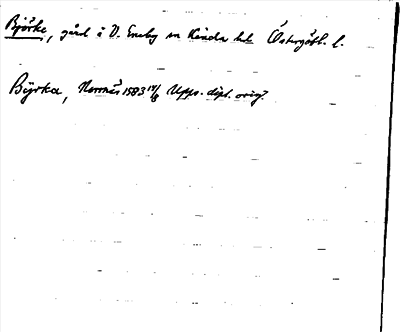 Björke, gård i V. Eneby sn Kinda hd Östergötl. l.
Byrka, 1583 Upps. dipl. orig.